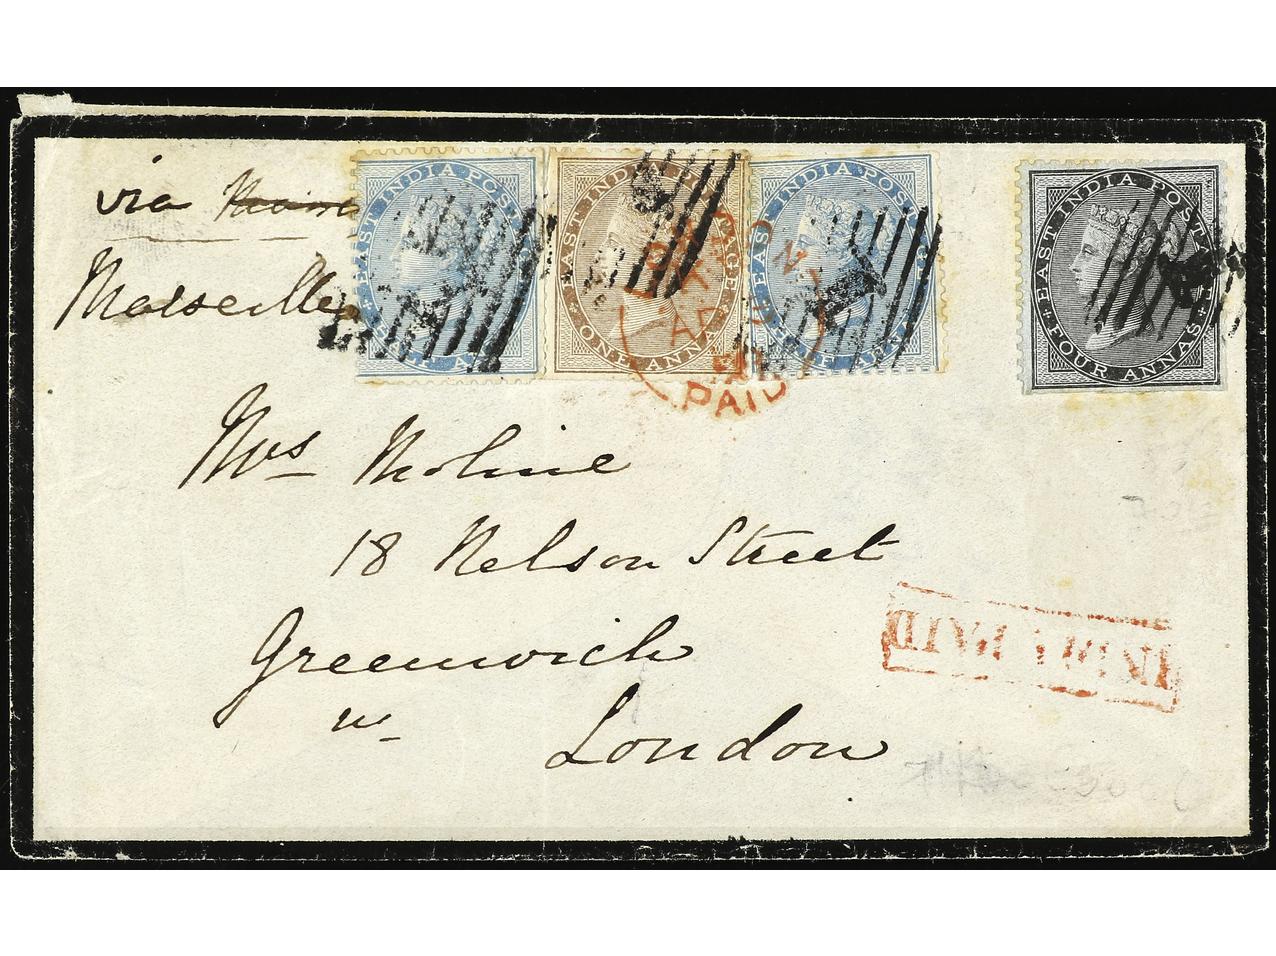 via
Marseilles
EAST INDIA POSTAGE
HALF ANNA
EAST INDIA POSTAGE
ONE ANNA
EAST INDIA POSTAGE
HALF ANNA
EAST INDIA POSTAGE
FOUR ANNAS
LONDON
AP
PAID
Mrs Moline
18 Nelson Street
Greenwich
London
INDIA PAID